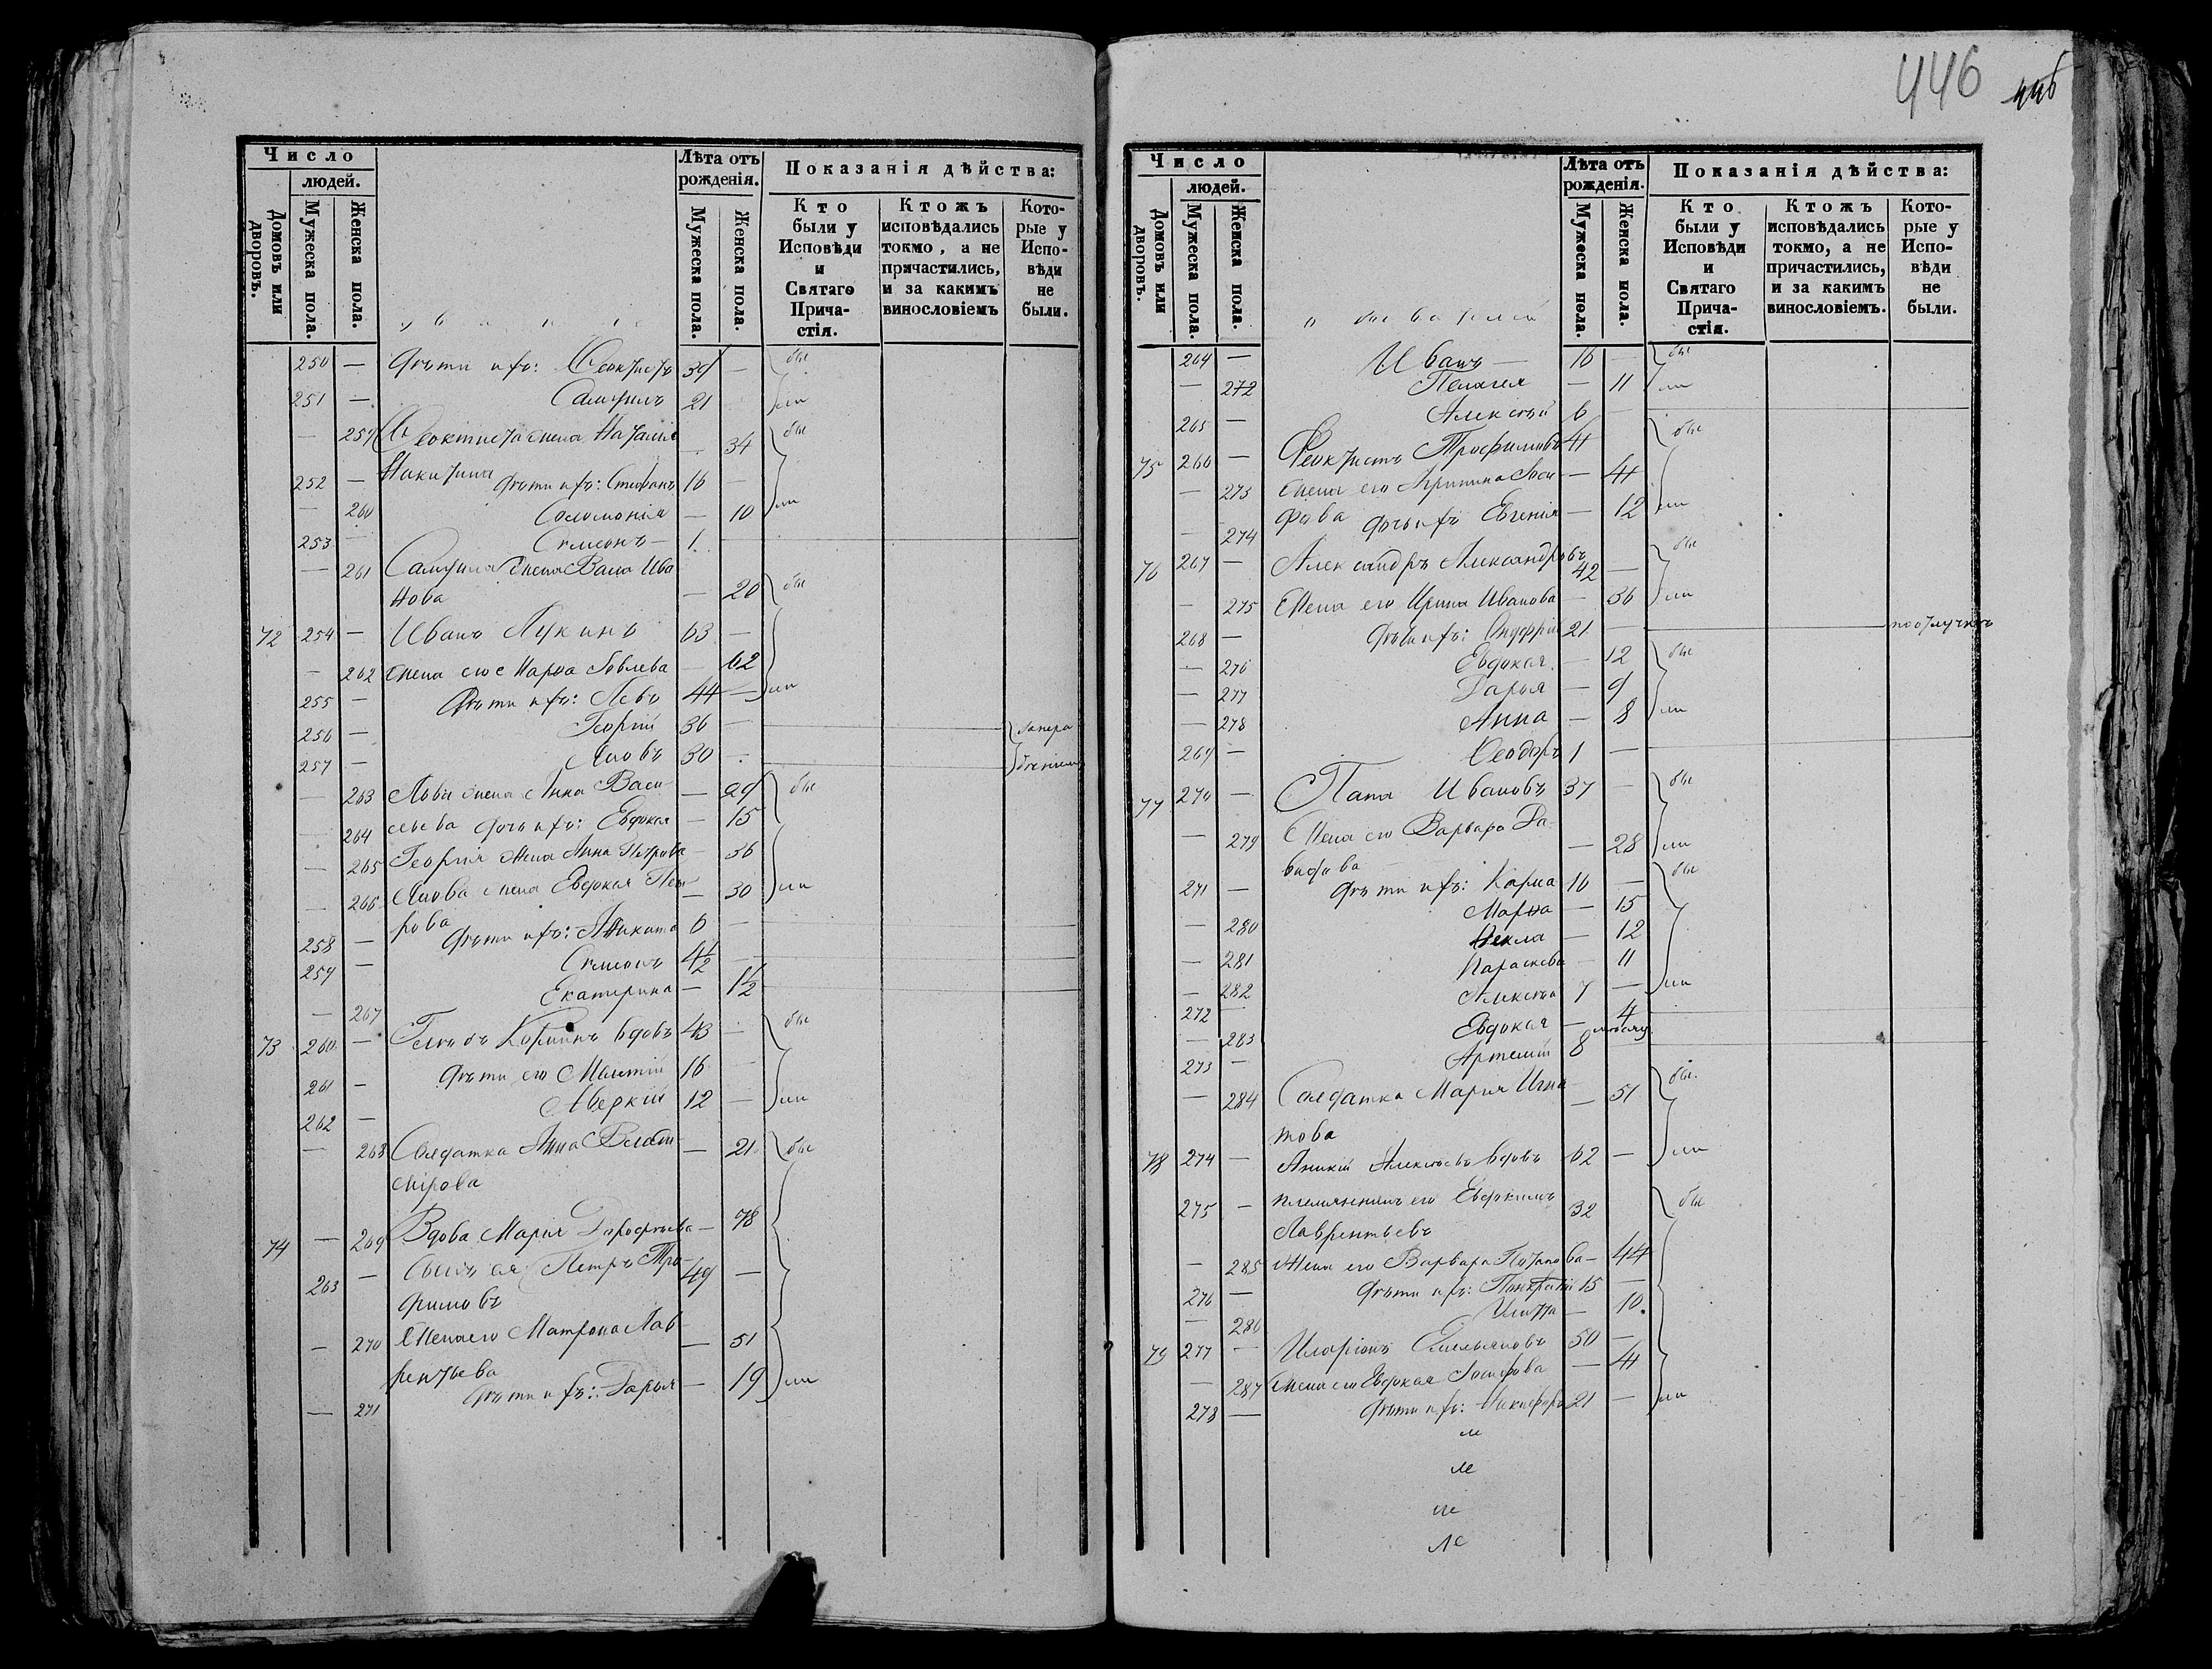 Число
людей.
Домовъ или дворовъ.
Мужеска пола.
Женска пола.
Лѣта отъ рожденія.
Мужеска пола.
Женска пола.
Показанія дѣйства:
Кто были у Исповѣди и Святаго Прича-стія.
Ктожъ исповѣдались токмо, а не причастились, и за какимъ винословіемъ
Кото-рые у Испо-вѣди не были.
250 — Дѣти ихъ: Ѳеоктистъ 39 — бы
251 — Самуилъ 21 ли
— 259 Ѳеоктиста жена Наталия — 34 бы
Никитина
252 — Дѣти ихъ: Стефанъ 16 —
— 260 Соломонія — 10 ли
253 — Симеонъ 1
— 261 Самуила жена Васа Ива
нова — 20 бы
72 254 — Иванъ Лукинъ 63 —
— 262 жена его Марѳа Іовлева — 62
255 — Дѣти ихъ: Левъ 44 — ли
256 — Георгій 36 —
257 — Яковъ 30 —
— 263 Льва жена Анна Васи — 29 бы
— 264 льева дочь ихъ: Евдокия — 15
— 265 Георгия жена Анна Петрова — 36
— 266 Якова жена Евдокия Пет — 30 ли
рова
258 — Дѣти ихъ: Никита 6 —
259 — Симеонъ 4½ —
— 267 Екатерина — 1½
73 260 — вдовъ 43 — бы
261 — Дѣти его 16 —
262 — Аверкій 12 — ли
— 268 Солдатка Анна Влади — 21 бы
мірова
74 — 269 Вдова Марія Дорофѣева — 78
263 — Сынъ ея Петръ Тро 49 —
фимовъ
— 270 Жена его Матрона Лав — 51
рентьева
— 271 Дѣти ихъ: Дарья — 19 ли
446
446
Число
людей.
Домовъ или дворовъ.
Мужеска пола.
Женска пола.
Лѣта отъ рожденія.
Мужеска пола.
Женска пола.
Показанія дѣйства:
Кто были у Исповѣди и Святаго Прича-стія.
Ктожъ исповѣдались токмо, а не причастились, и за какимъ винословіемъ.
Кото-рые у Испо-вѣди не были.
264 — Иванъ — 16 — бы
— 272 Пелагея — 11 ли
265 — Алексѣй 6 —
75 266 — Ѳеоктистъ Трофимовъ 41 бы
— 273 жена его Иринина Іоси — 41
фова
— 274 дочь ихъ Евгенія — 12 ли
76 267 — Александръ Александровъ 42 — бы
— 275 Жена его Ирина Иванова — 36 ли
268 — Дѣти ихъ: Онуфрій 21 — по отлучкѣ
— 276 Евдокия — 12 бы
— 277 Дарья — 9
— 278 Анна — 8 ли
269 — Ѳеодоръ 1 —
77 270 — Ивановъ 37 — бы
— 279 Жена его Варвара Да — 28 ли
выдова
271 — Дѣти ихъ: Карпъ 16 — бы
— 280 Марѳа — 15
— 281 Ѳекла — 12
— 282 Параскева — 11
272 — Алексѣй 7 — ли
— 283 Евдокия — 4
273 — Артемій 8 месяц.
— 284 Солдатка Мария Игна — 51 бы
това
78 274 — Аникій Алексѣевъ вдовъ 62 — ли
275 — племянникъ его Евдокимъ 32 бы
Лаврентьевъ
— 285 Жена его Варвара Потапова — 44
276 — Дѣти ихъ: Панкратій 15 —
— 286 Улита — 10
79 277 — Иларіонъ Емельяновъ 50 —
— 287 жена его Евдокия Іосифова — 41
278 — Дѣти ихъ: Никифоръ 21 — ли